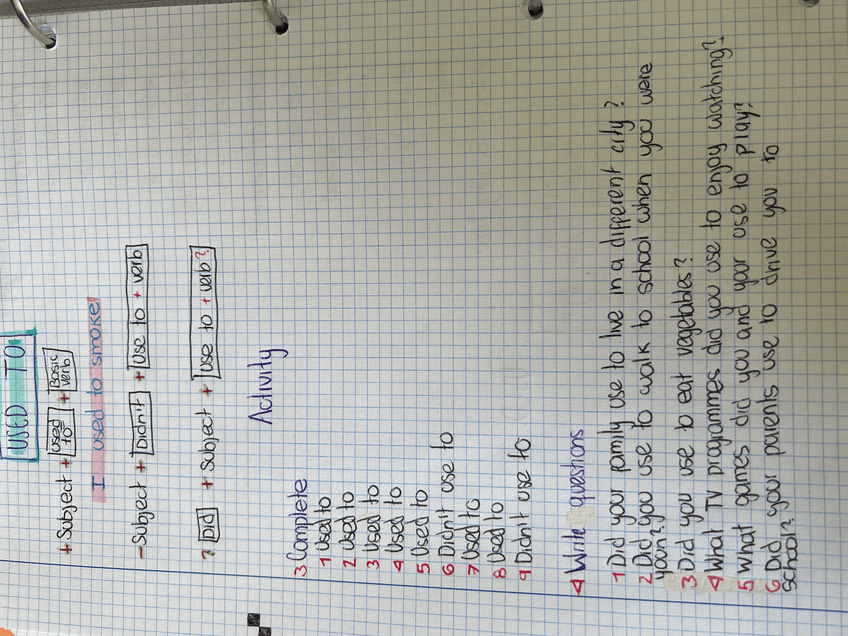 USED TO
+ Subject + Used to + Basic verb
I used to smoke
- Subject + Didn't + Use to + verb
? Did + Subject + Use to + verb?
Activity
3 Complete
1 Used to
2 Used to
3 Used to
4 Used to
5 Used to
6 Didn't use to
7 Used to
8 Used to
9 Didn't use to
4 Write questions
1 Did your family use to live in a different city?
2 Did you use to walk to school when you were
youn?
3 Did you use to eat vegetables?
4 What TV programmes did you use to enjoy watching?
5 What games did you and your use to play?
6 Did your parents use to drive you to
school?